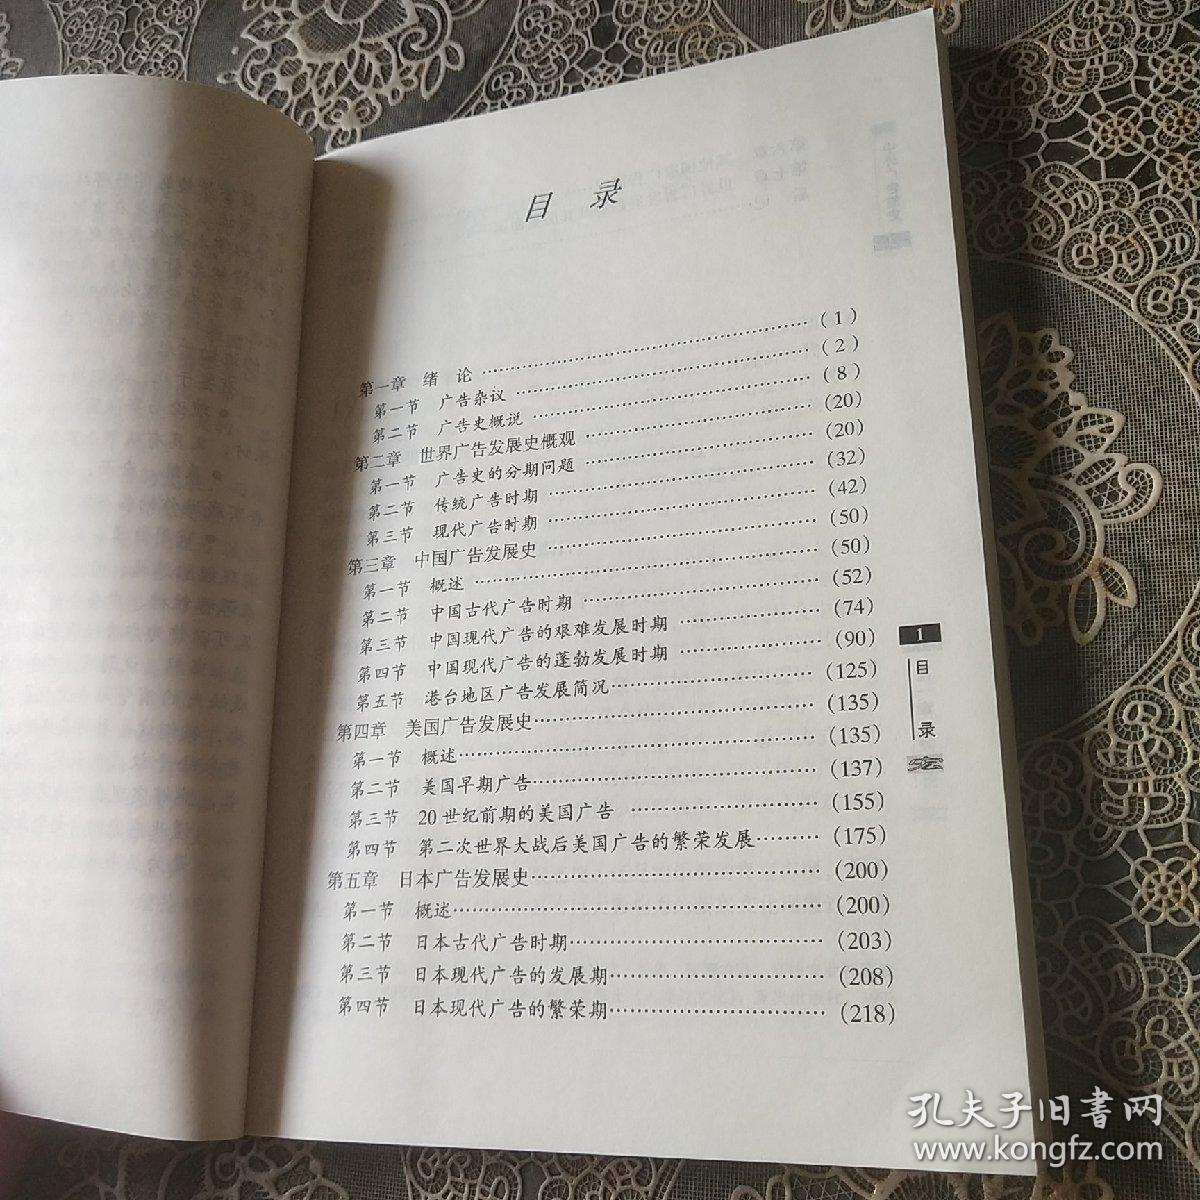 目 录
第一章 绪 论 ……………………………………… (1)
第一节 广告杂议 ……………………………………… (2)
第二节 广告史概说 ……………………………………… (8)
第二章 世界广告发展史概观 ……………………………………… (20)
第一节 广告史的分期问题 ……………………………………… (20)
第二节 传统广告时期 ……………………………………… (32)
第三节 现代广告时期 ……………………………………… (42)
第三章 中国广告发展史 ……………………………………… (50)
第一节 概述 ……………………………………… (50)
第二节 中国古代广告时期 ……………………………………… (52)
第三节 中国现代广告的艰难发展时期 ……………………… (74)
第四节 中国现代广告的蓬勃发展时期 ……………………… (90)
第五节 港台地区广告发展简况 ……………………………… (125)
第四章 美国广告发展史 ……………………………………… (135)
第一节 概述 ……………………………………… (135)
第二节 美国早期广告 ……………………………………… (137)
第三节 20世纪前期的美国广告 ……………………………… (155)
第四节 第二次世界大战后美国广告的繁荣发展 ……… (175)
第五章 日本广告发展史 ……………………………………… (200)
第一节 概述 ……………………………………… (200)
第二节 日本古代广告时期 ……………………………… (203)
第三节 日本现代广告的发展期 ……………………………… (208)
第四节 日本现代广告的繁荣期 ……………………………… (218)
1
目
录
孔夫子旧書网
www.kongfz.com